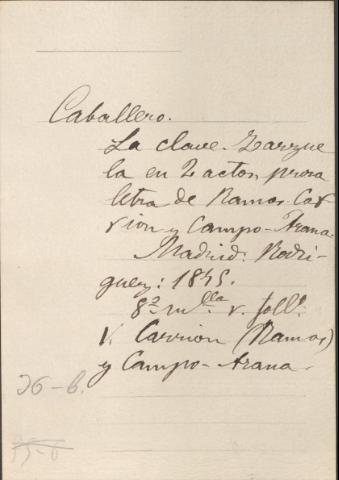 Caballero.
La clave. Zarzue
la en 2 actos, prosa
letra de Ramos Car
rion y Campo-Arana.
Madrid: Rodri-
guez: 1875.
8º mlla v. foll.
V. Carrion (Ramos)
y Campo-Arana.
26-6.